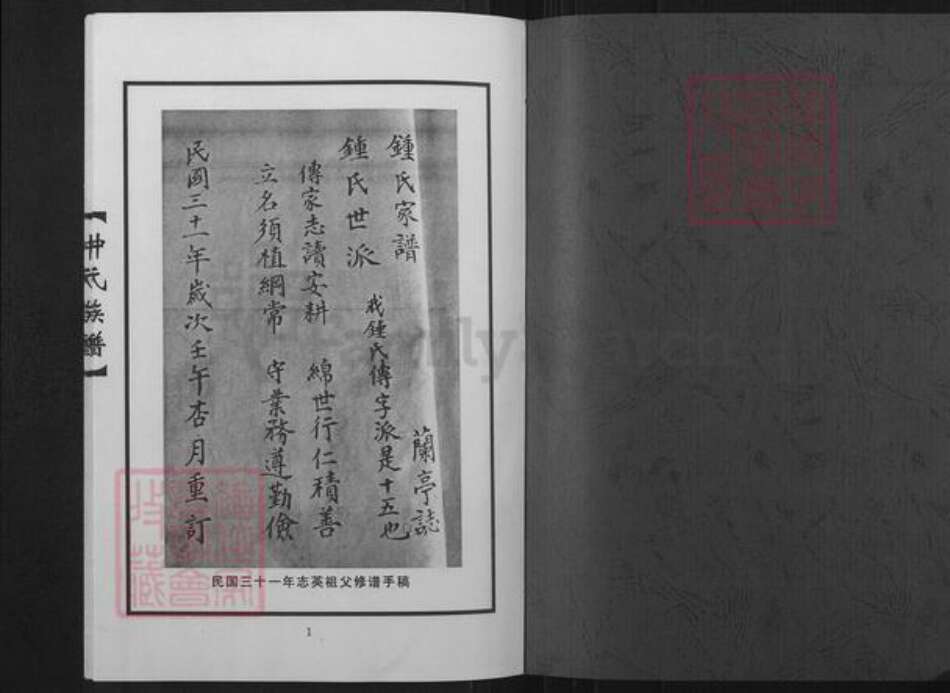 鍾氏家譜
蘭亭誌
鍾氏世派
我鍾氏傳字派是十五也
傳家志讀安耕 綿世行仁積善
立名須植綱常 守業務遵勤儉
民國三十一年歲次壬午杏月重訂
民国三十一年志英祖父修谱手稿
1